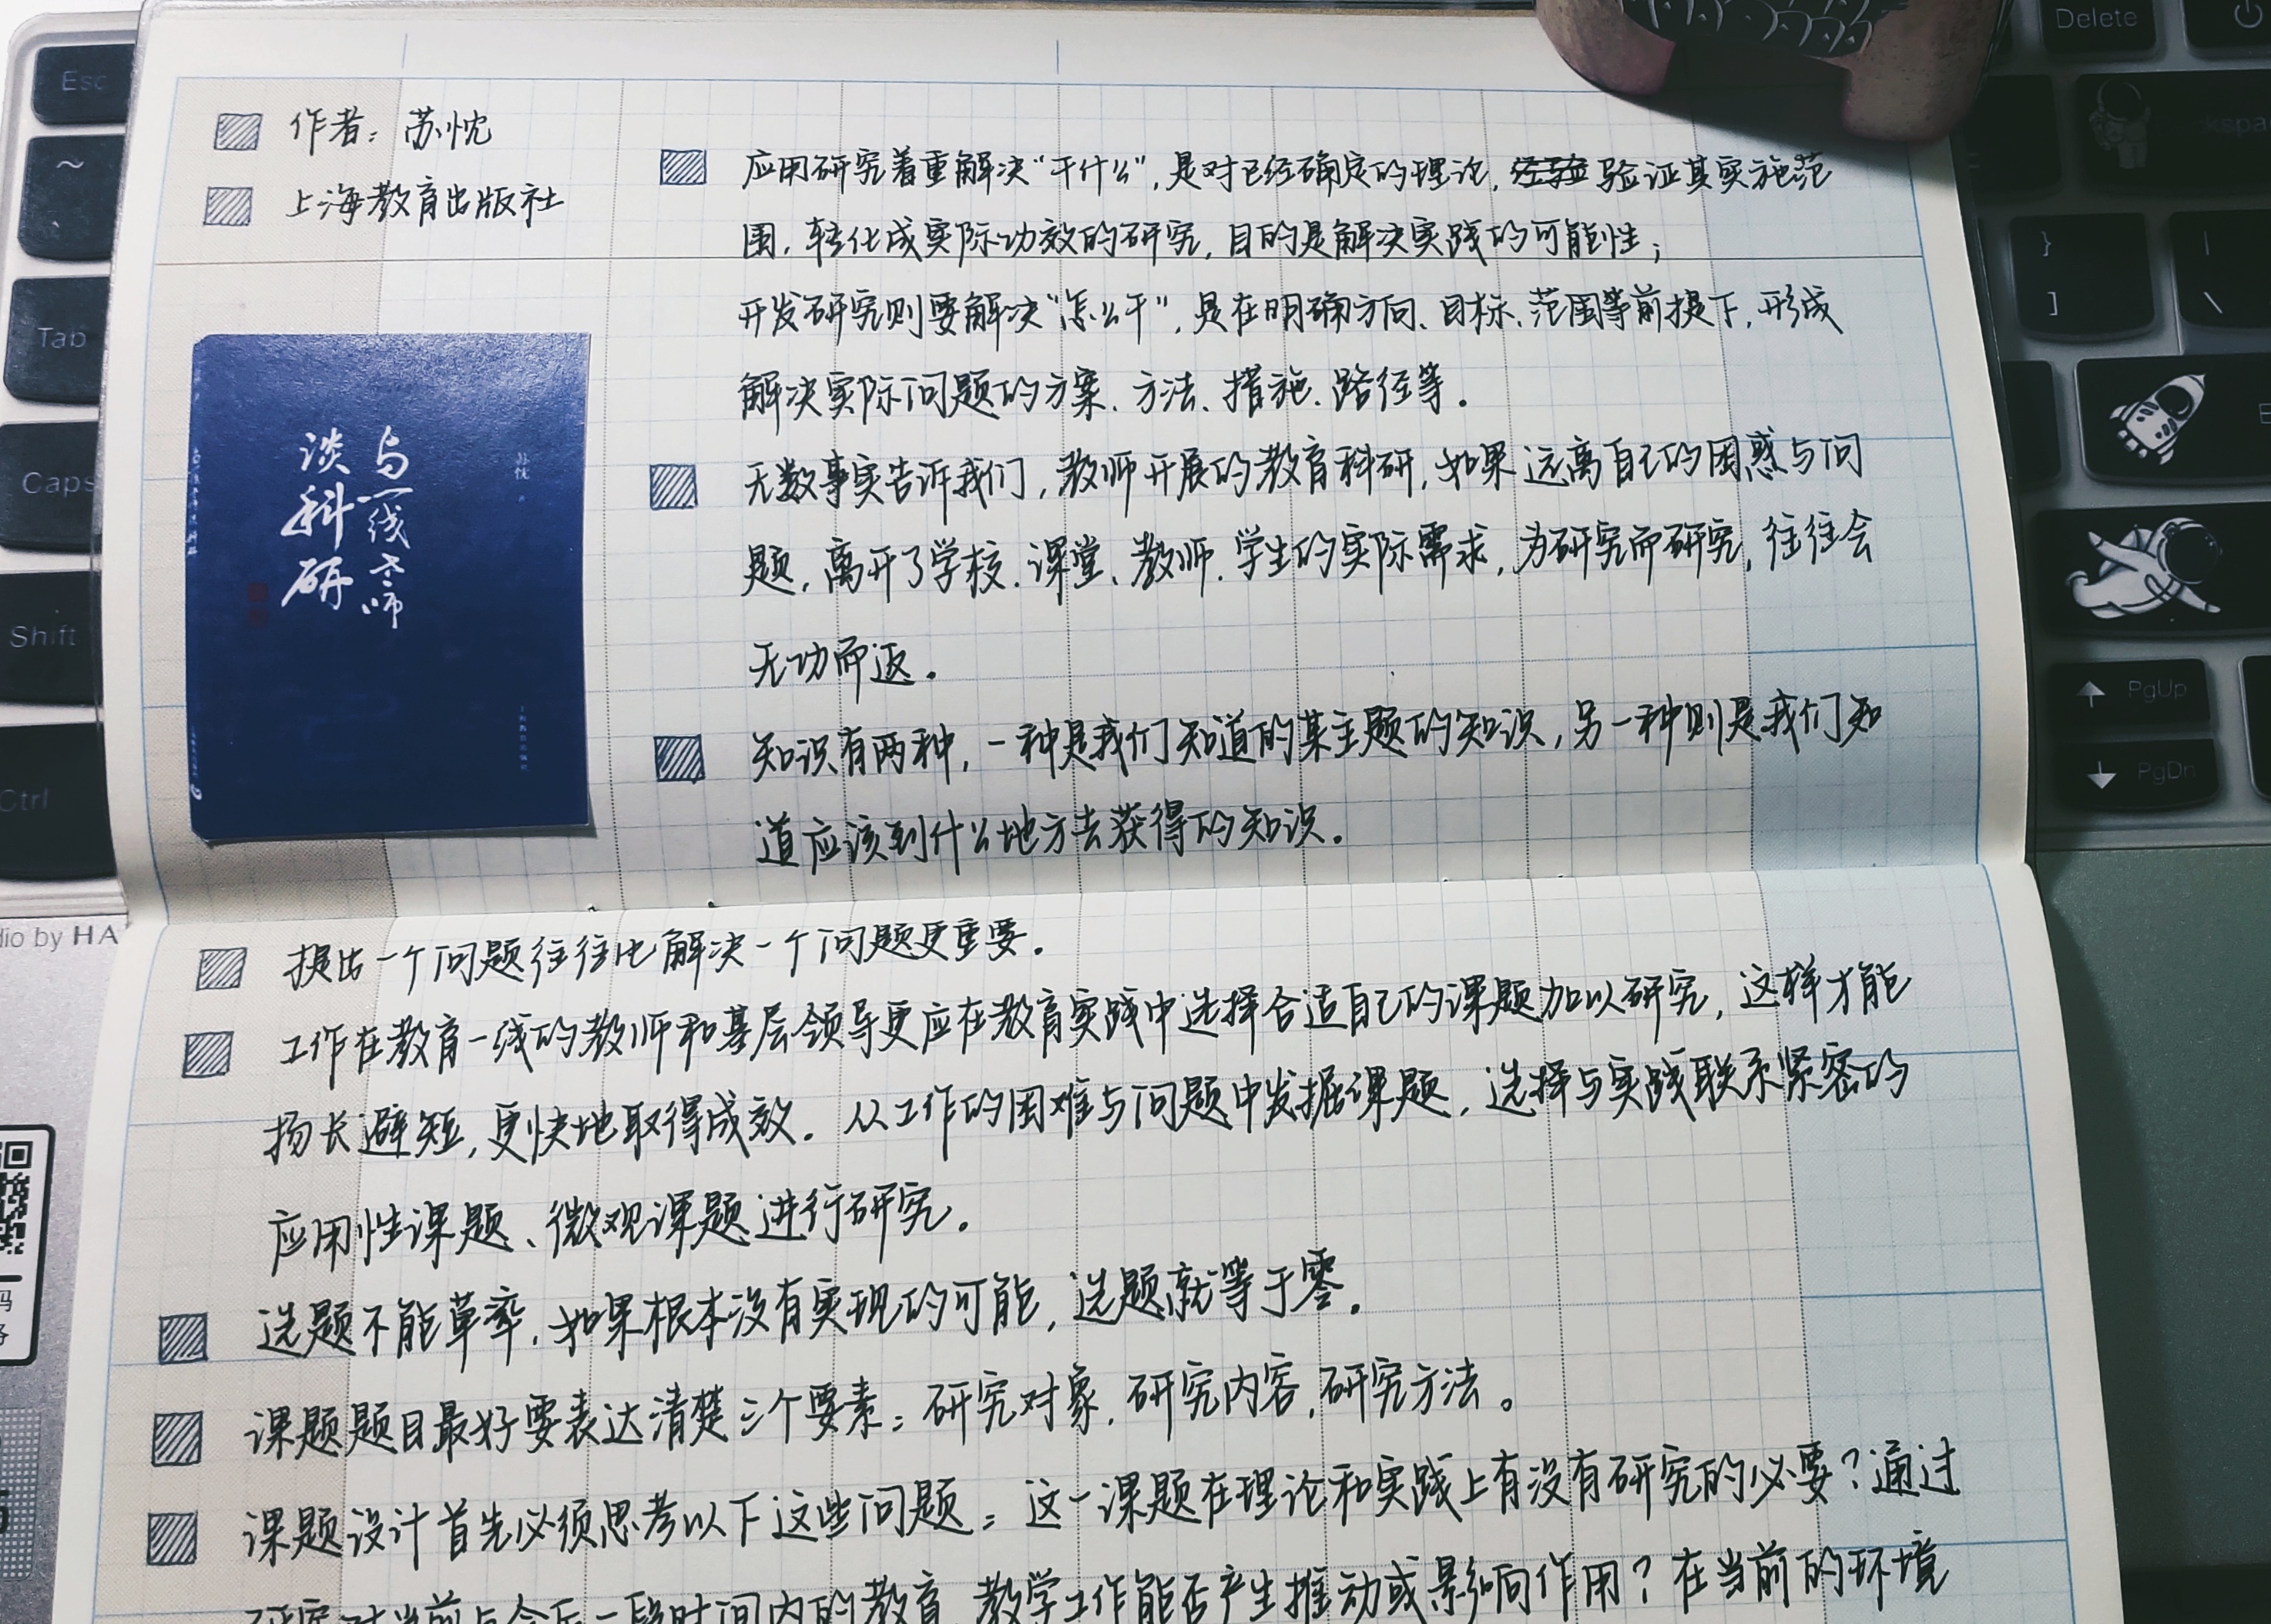 作者：苏忱
上海教育出版社
与一线教师
谈科研
苏忱 著
应用研究着重解决“干什么”，是对已经确定的理论，经验验证其实施范
围，转化成实际功效的研究，目的是解决实践的可能性；
开发研究则要解决“怎么干”，是在明确方向、目标、范围等前提下，形成
解决实际问题的方案、方法、措施、路径等。
无数事实告诉我们，教师开展的教育科研，如果远离自己的困惑与问
题，离开了学校、课堂、教师、学生的实际需求，为研究而研究，往往会
无功而返。
知识有两种，一种是我们知道的某主题的知识，另一种则是我们知
道应该到什么地方去获得的知识。
提出一个问题往往比解决一个问题更重要。
工作在教育一线的教师和基层领导更应在教育实践中选择合适自己的课题加以研究，这样才能
扬长避短，更快地取得成效。从工作的困难与问题中发掘课题，选择与实践联系紧密的
应用性课题、微观课题进行研究。
选题不能草率，如果根本没有实现的可能，选题就等于零。
课题题目最好要表达清楚三个要素：研究对象，研究内容，研究方法。
课题设计首先必须思考以下这些问题：这一课题在理论和实践上有没有研究的必要？通过
研究对当前与今后一段时间内的教育、教学工作能否产生推动或影响作用？在当前的环境
Esc
~
Tab
Caps
Shift
Ctrl
Delete
}
]
|
\
PgUp
PgDn
dio by HA
码